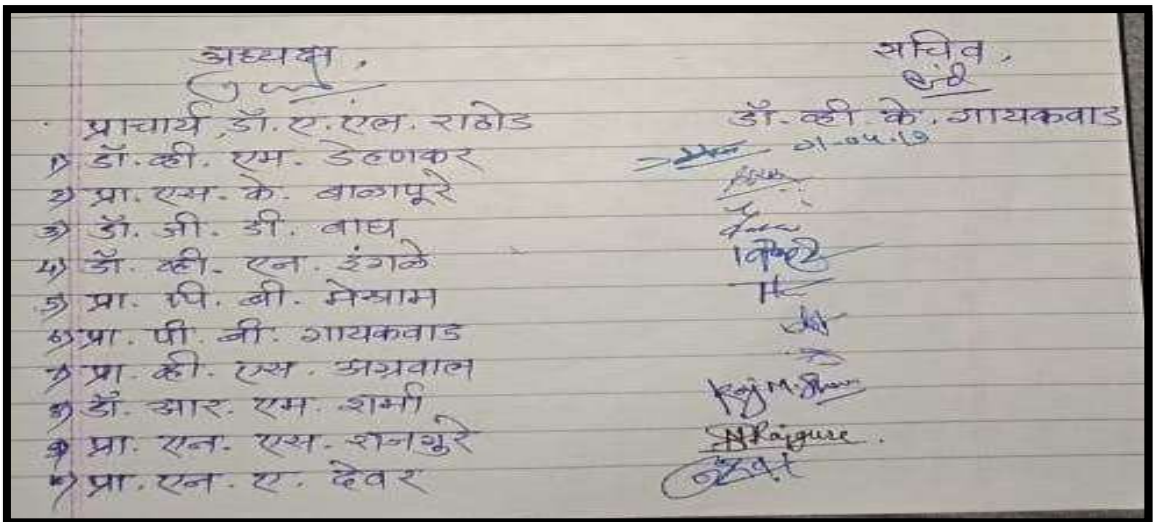 अध्यक्ष, सचिव,
प्राचार्य डॉ. ए. एल. राठोड डॉ. व्ही के. गायकवाड
1) डॉ. व्ही. एम. डेहणकर
2) प्रा. एस. के. बाळापूरे
3) डॉ. जी. डी. वाघ
4) डॉ. व्ही. एन. इंगळे
5) प्रा. पी. बी. मेश्राम
6) प्रा. पी. बी. गायकवाड
7) प्रा. व्ही. एस. अग्रवाल
8) डॉ. आर. एम. शर्मा
9) प्रा. एन. एस. राजगूरे NRajgure.
10) प्रा. एन. ए. देवर